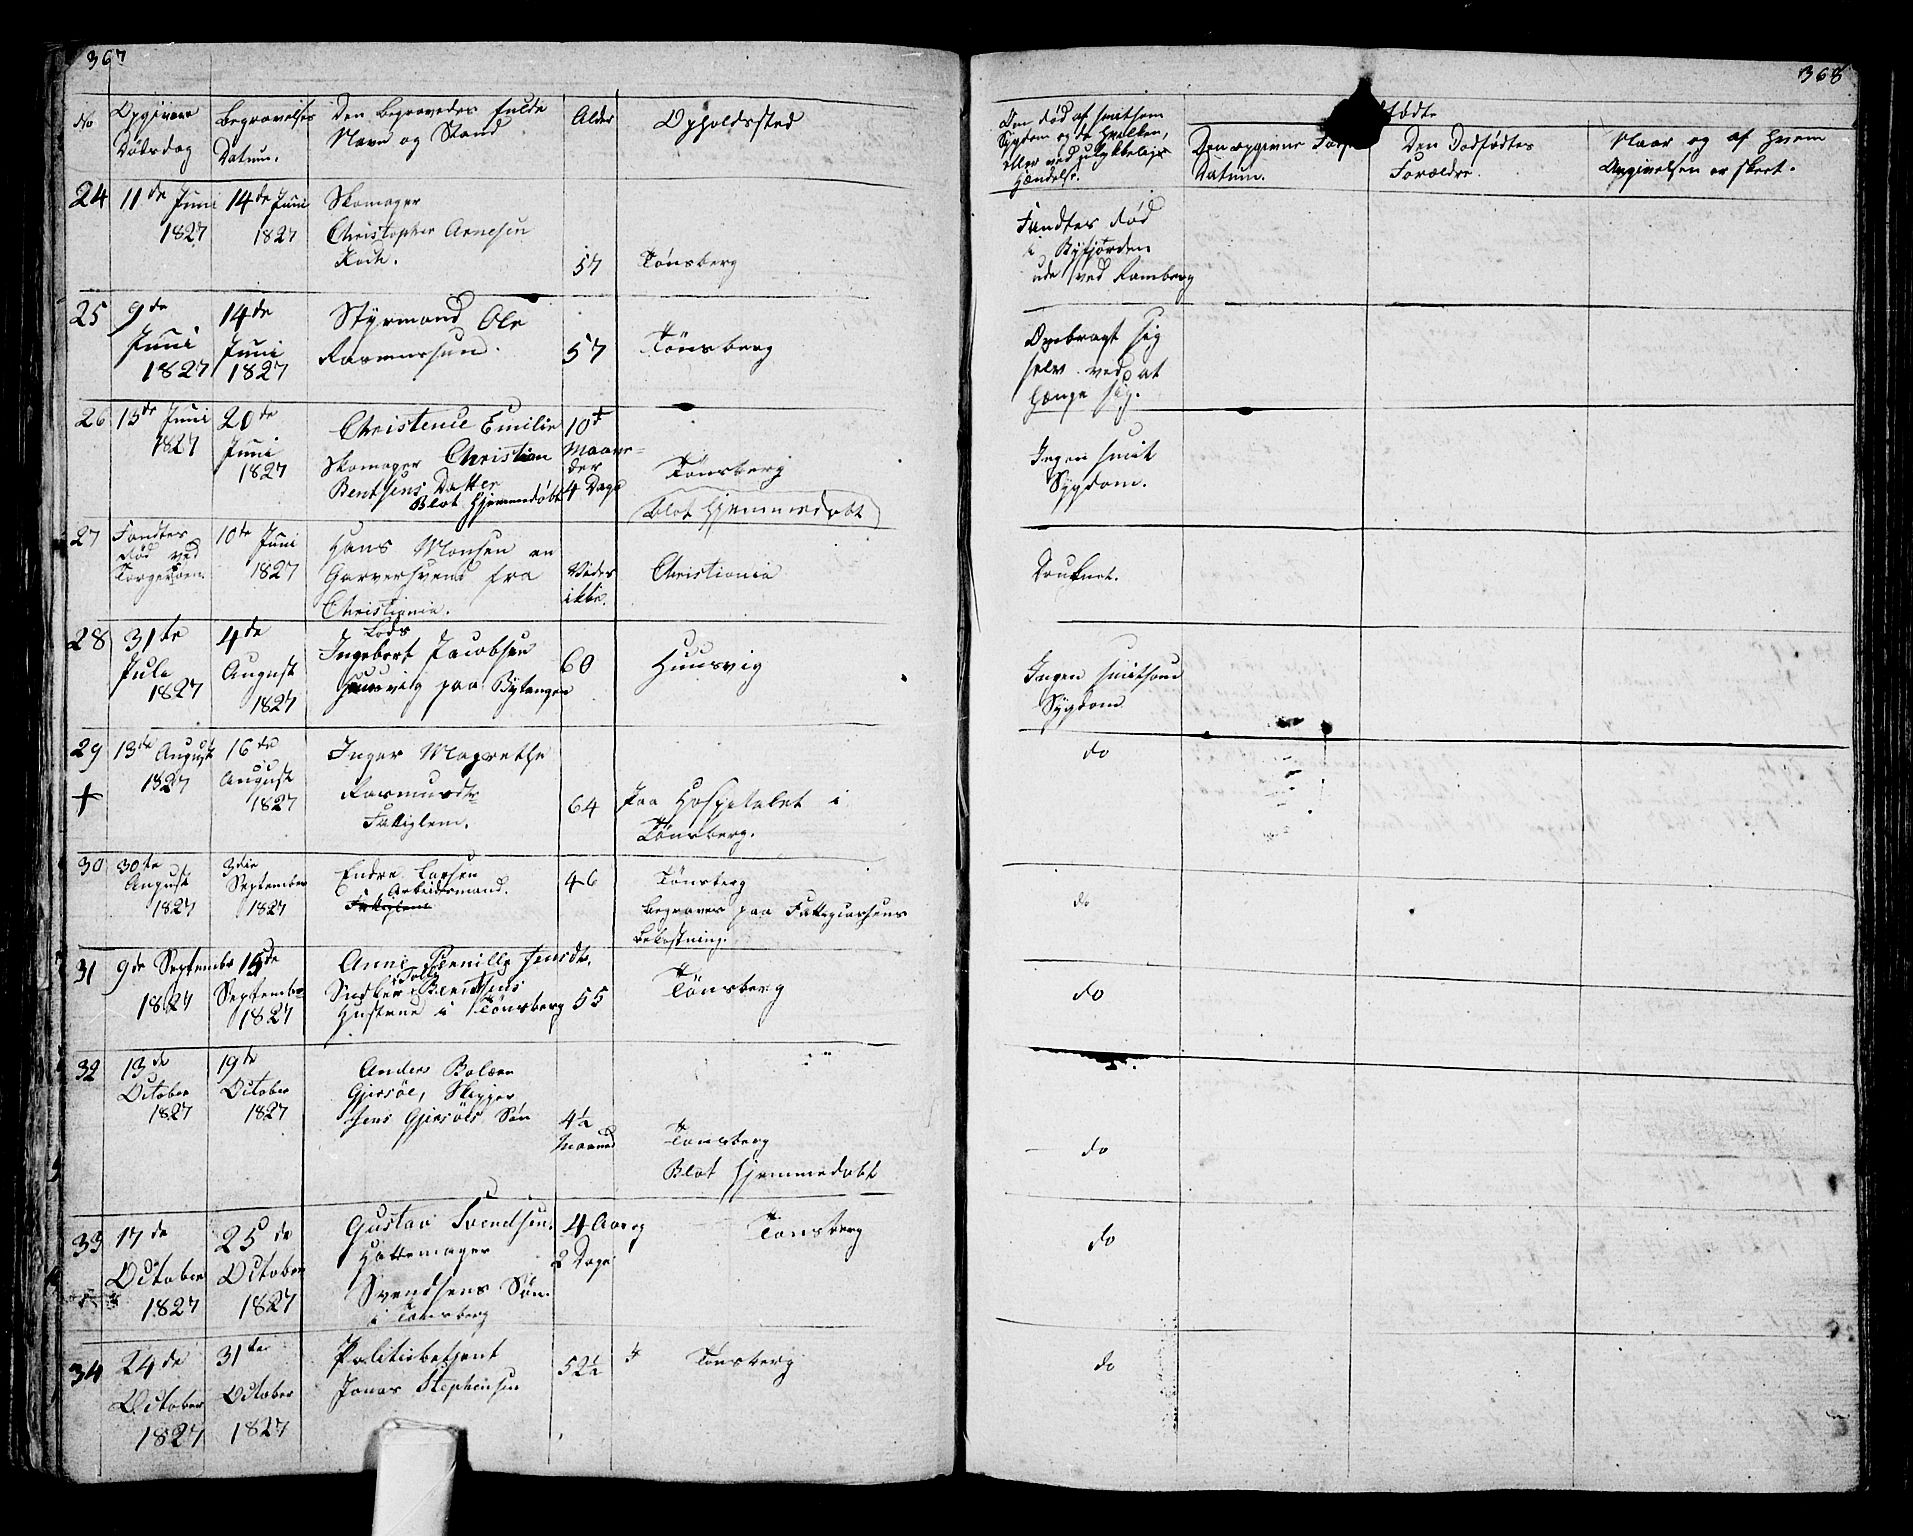 367
No
Opgivne
Dødsdag
Begravelses
Datum.
Den Begravedes fulde
Navn og Stand
Alder
Opholdssted
24
11de Juni
1827
14de Juni
1827
Skomager
Christopher Arnesen
Koch.
57
Tønsberg
25
9de
Juni
1827
14de
Juni
1827
Styrmand Ole
Rasmussen.
57
Tønsberg
26
15de Juni
1827
20de
Juni
1827
Christence Emilie
Skomager Christian
Bentsens Datter
Blot Hjemmedøbt
10
Maane-
der
4 Dage
Tønsberg
blot Hjemmedøbt
27
Fandtes
død ved
10de Juni
1827
Hans Monsen en
Garversvend fra
Christiania.
Vides
ikke.
Christiania
28
31te
Julii
1827
4de
August
1827
Lods
Ingebert Jacobsen
Huusvig paa Bytangen
60
Huusvig
29
+
13de August
1827
16de
August
1827
Inger Magrethe
Rasmusdtr
Fattiglem.
64
Paa Hospitalet i
Tønsberg.
30
30te
August
1827
3die
September
1827
Endre Larsen
Arbeidsmand.
Fattiglem
46
Tønsberg
Begraves paa Fattigcassens
Bekostning.
31
9de Septembr
1827
15de
Septembr
1827
Anne Pernille Jensdtr.
Tolle
Snedker Bentsens
Hustrue i Tønsberg
55
Tønsberg
32
13de
October
1827
19de
October
1827
Anders Bolæren
Gjersøe, Skipper
Jens Gjersøes Søn
4½
Maaned
Tønsberg
Blot Hjemmedøbt
33
17de
October
1827
25de
October
1827
Gustav Svendsen.
Hattemager
Svendsens Søn
i Tønsberg
4 Aar og
2 Dage
Tønsberg
34
24de
October
1827
31te
October
1827
Politiebetjent
Jonas Stephensen
52½
Tønsberg
368
Om død af smitsom
Sygdom og da hvilken,
eller ved ulykkelige
Hændelse.
Den opgivne
Datum.
Den Dødfødtes
Forældre.
Naar og af hvem
Angivelsen er skeet.
Fandtes død
i Byfjorden
ude ved Ramberg
Ombragt sig
selv ved at
hænge sig.
Ingen smit
Sygdom.
Druknet.
Ingen smitsom
Sygdom
do
do
do
do
do
do